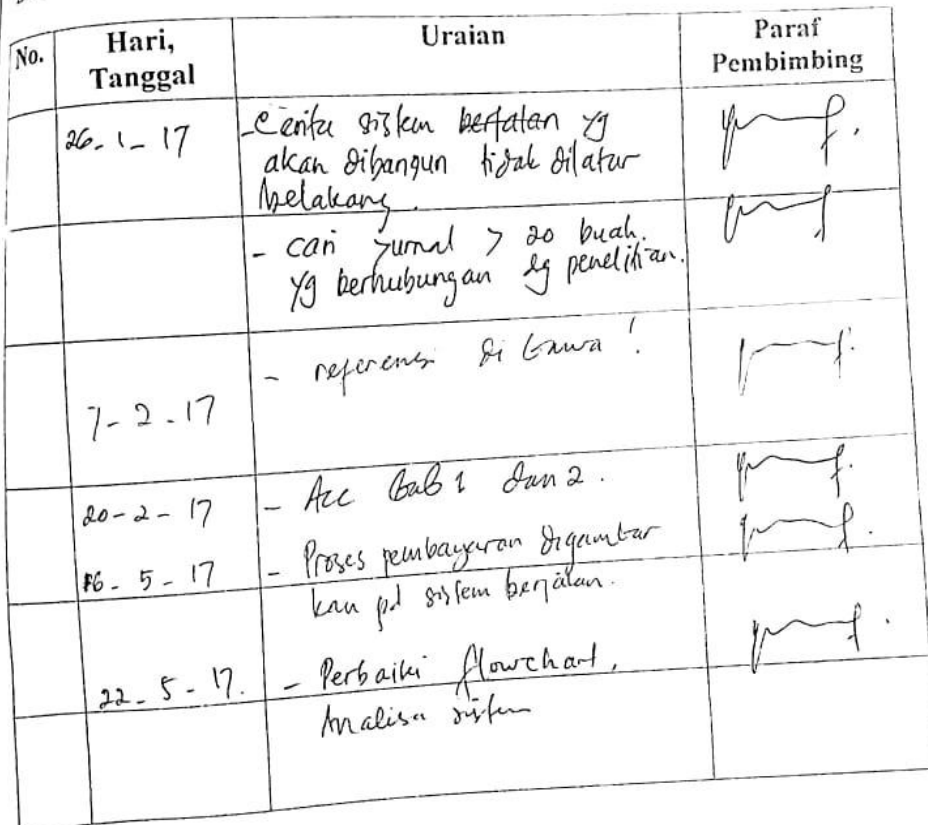 No.
Hari,
Tanggal
Uraian
Paraf
Pembimbing
26-1-17
- Cerita sistem berjalan yg
akan dibangun tidak dilatar
belakang.
- cari jurnal > 20 buah.
yg berhubungan dg penelitian.
7-2-17
- referensi di bawa!
20-2-17
- Acc Bab 1 dan 2.
16-5-17
- Proses pembayaran digambar
kan pd sistem berjalan.
22-5-17.
- Perbaiki flowchart,
Analisa sistem